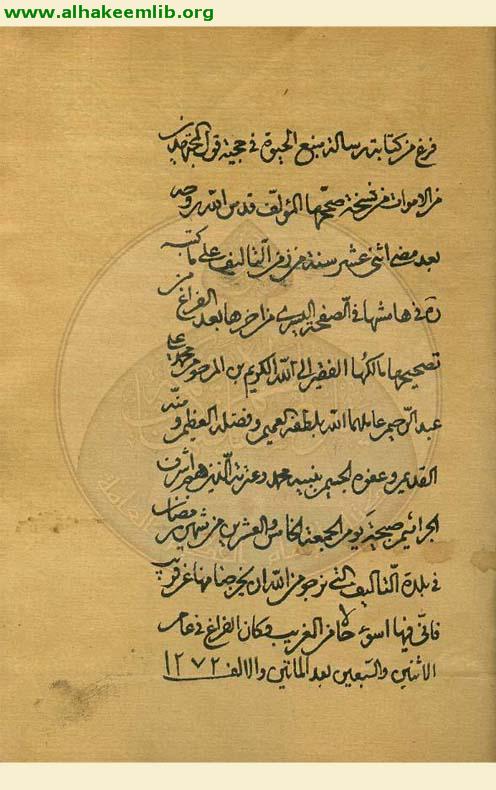 www.alhakeemlib.org
فرغ من كتابة رسالة منبع الحيوة في حجية قول المجتهدين
من الاموات من نسخة صحّحها المؤلّف قدس الله روحه
بعد مضي اثنى عشر سنة من زمن التاليف على ما كتبه
ره في هامشها في الصفحة اليسرى من اخرها بعد الفراغ من
تصحيحها مالكها الفقير الى الله الكريم بن المرحوم محمد علي
عبد الرّحيم عاملهما الله بلطفه العميم وفضله العظيم ومنّه
القديم وعفوه الجسيم بنبيه محمد وعترته الذين هم اشرف
الجراثيم صبيحة يوم الجمعة الخامس والعشرين من شهر رمضان
في بلدة التاليف التي نرجو من الله ان يخرجنا منها عن قريب
فانّي فيها اسوء حالا من الغريب وكان الفراغ في عام
الاثنين والسّبعين بعد الماتين والالف ١٢٧٢